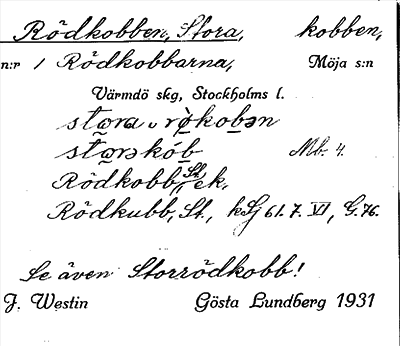 Rödkobben, Stora, kobben,
n:r 1 Rödkobbarna, Möja s:n
Värmdö skg, Stockholms l.
stora v rö̀kobən
storəkob Mb. 4.
Rödkobb, St. ek.
Rödkubb, St., kSj 61. 7. VI, G. 76.
Se även Storrödkobb!
J. Westin Gösta Lundberg 1931